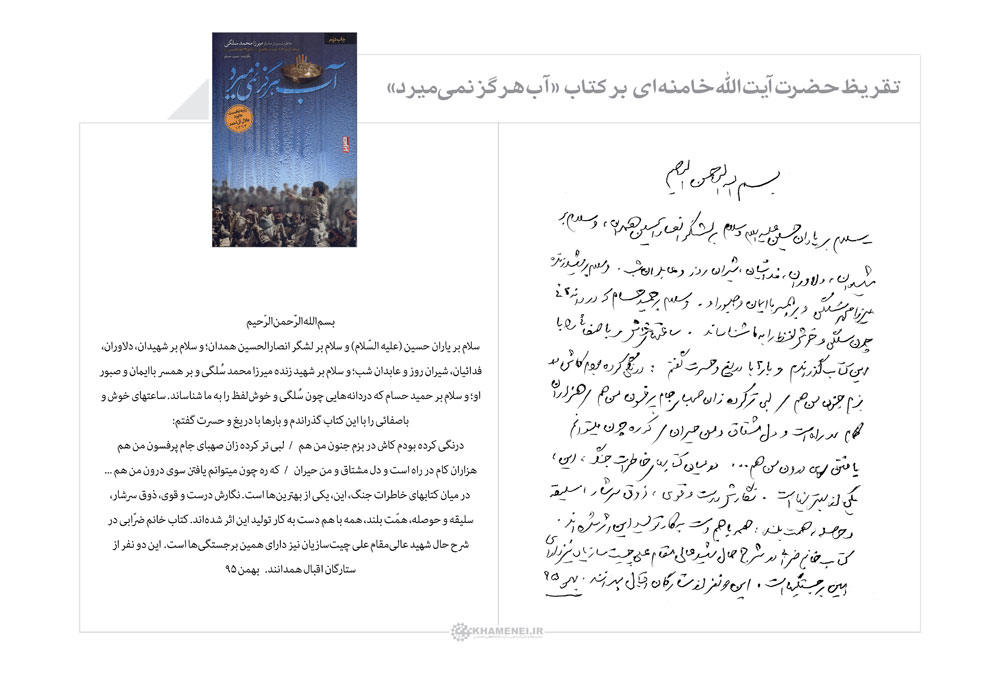 تقریظ حضرت آیت‌الله خامنه‌ای بر کتاب «آب هرگز نمی‌میرد»
چاپ دوم
میرزا محمد سلگی
آب هرگز نمی‌میرد
بسم الله الرحمن الرحیم
سلام بر یاران حسین علیه السلام و سلام بر لشگر انصارالحسین همدان، و سلام بر
شهیدان، دلاوران، فدائیان، شیران روز و عابدان شب. و سلام بر شهید زنده
میرزا محمد سلگی و بر همسر باایمان و صبور او. و سلام بر حمید حسام که دردانه‌هائی
چون سلگی و خوش‌لفظ را به ما شناساند. ساعتهای خوش و باصفائی را با
این کتاب گذراندم و بارها با دریغ و حسرت گفتم: درنگی کرده بودم کاش در
بزم جنون من هم / لبی تر کرده زان صهبای جام پرفسون من هم / هزاران
کام در راه است و دل مشتاق و من حیران / که ره چون میتوانم
یافتن سوی درون من هم... در میان کتابهای خاطرات جنگ، این،
یکی از بهترینها است. نگارش درست و قوی، ذوق سرشار، سلیقه
و حوصله، همت بلند، همه با هم دست به کار تولید این اثر شده‌اند.
کتاب خانم ضرابی در شرح حال شهید عالی‌مقام علی چیت‌سازیان نیز دارای
همین برجستگیها است. این دو نفر از ستارگان اقبال همدانند. بهمن ۹۵
بسم‌الله‌الرّحمن‌الرّحیم
سلام بر یاران حسین (علیه السّلام) و سلام بر لشگر انصارالحسین همدان؛ و سلام بر شهیدان، دلاوران،
فدائیان، شیران روز و عابدان شب؛ و سلام بر شهید زنده میرزا محمد سُلگی و بر همسر باایمان و صبور
او؛ و سلام بر حمید حسام که دردانه‌هایی چون سُلگی و خوش‌لفظ را به ما شناساند. ساعتهای خوش و
باصفائی را با این کتاب گذراندم و بارها با دریغ و حسرت گفتم:
درنگی کرده بودم کاش در بزم جنون من هم / لبی تر کرده زان صهبای جام پرفسون من هم
هزاران کام در راه است و دل مشتاق و من حیران / که ره چون میتوانم یافتن سوی درون من هم ...
در میان کتابهای خاطرات جنگ، این، یکی از بهترین‌ها است. نگارش درست و قوی، ذوق سرشار،
سلیقه و حوصله، همّت بلند، همه با هم دست به کار تولید این اثر شده‌اند. کتاب خانم ضرّابی در
شرح حال شهید عالی‌مقام علی چیت‌سازیان نیز دارای همین برجستگی‌ها است. این دو نفر از
ستارگان اقبال همدانند. بهمن ۹۵
KHAMENEI.IR